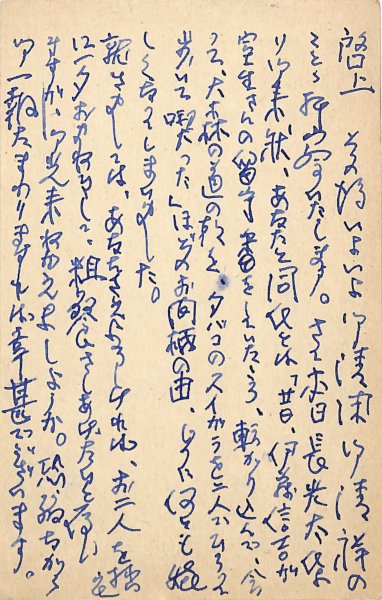 啓上 その後いよいよ御清沫御清祥の
ことゝ拝察いたします。さて本日長光太氏よ
り御来状、あなたと同氏とは「廿日、伊藤信吉が
室生さんの留守番をしていたころ、転がり込んで、会
って、大森の道の乾く、タバコのスイガラを二人でひろって
歩いて喫った」ほどのお間柄の由、じつに何とも嬉
しくなってしまいました。
就きましては、あなたさえよろしければ、お二人を
に一夕お招きして、粗餐さしあげたいと存じ
ますが、御光来賜れましょうか。恐縮ながら
御一報たまわりますれば幸甚でございます。